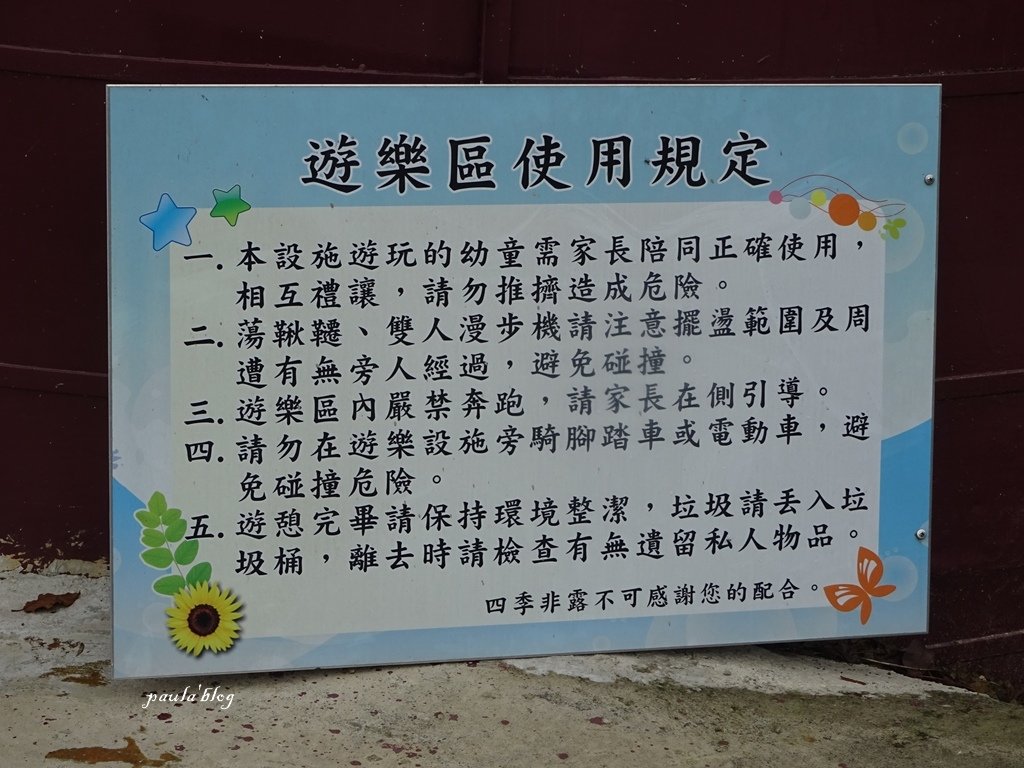 遊樂區使用規定
一.本設施遊玩的幼童需家長陪同正確使用，
相互禮讓，請勿推擠造成危險。
二.蕩鞦韆、雙人漫步機請注意擺盪範圍及周
遭有無旁人經過，避免碰撞。
三.遊樂區內嚴禁奔跑，請家長在側引導。
四.請勿在遊樂設施旁騎腳踏車或電動車，避
免碰撞危險。
五.遊憩完畢請保持環境整潔，垃圾請丟入垃
圾桶，離去時請檢查有無遺留私人物品。
四季非露不可感謝您的配合。
paula'blog